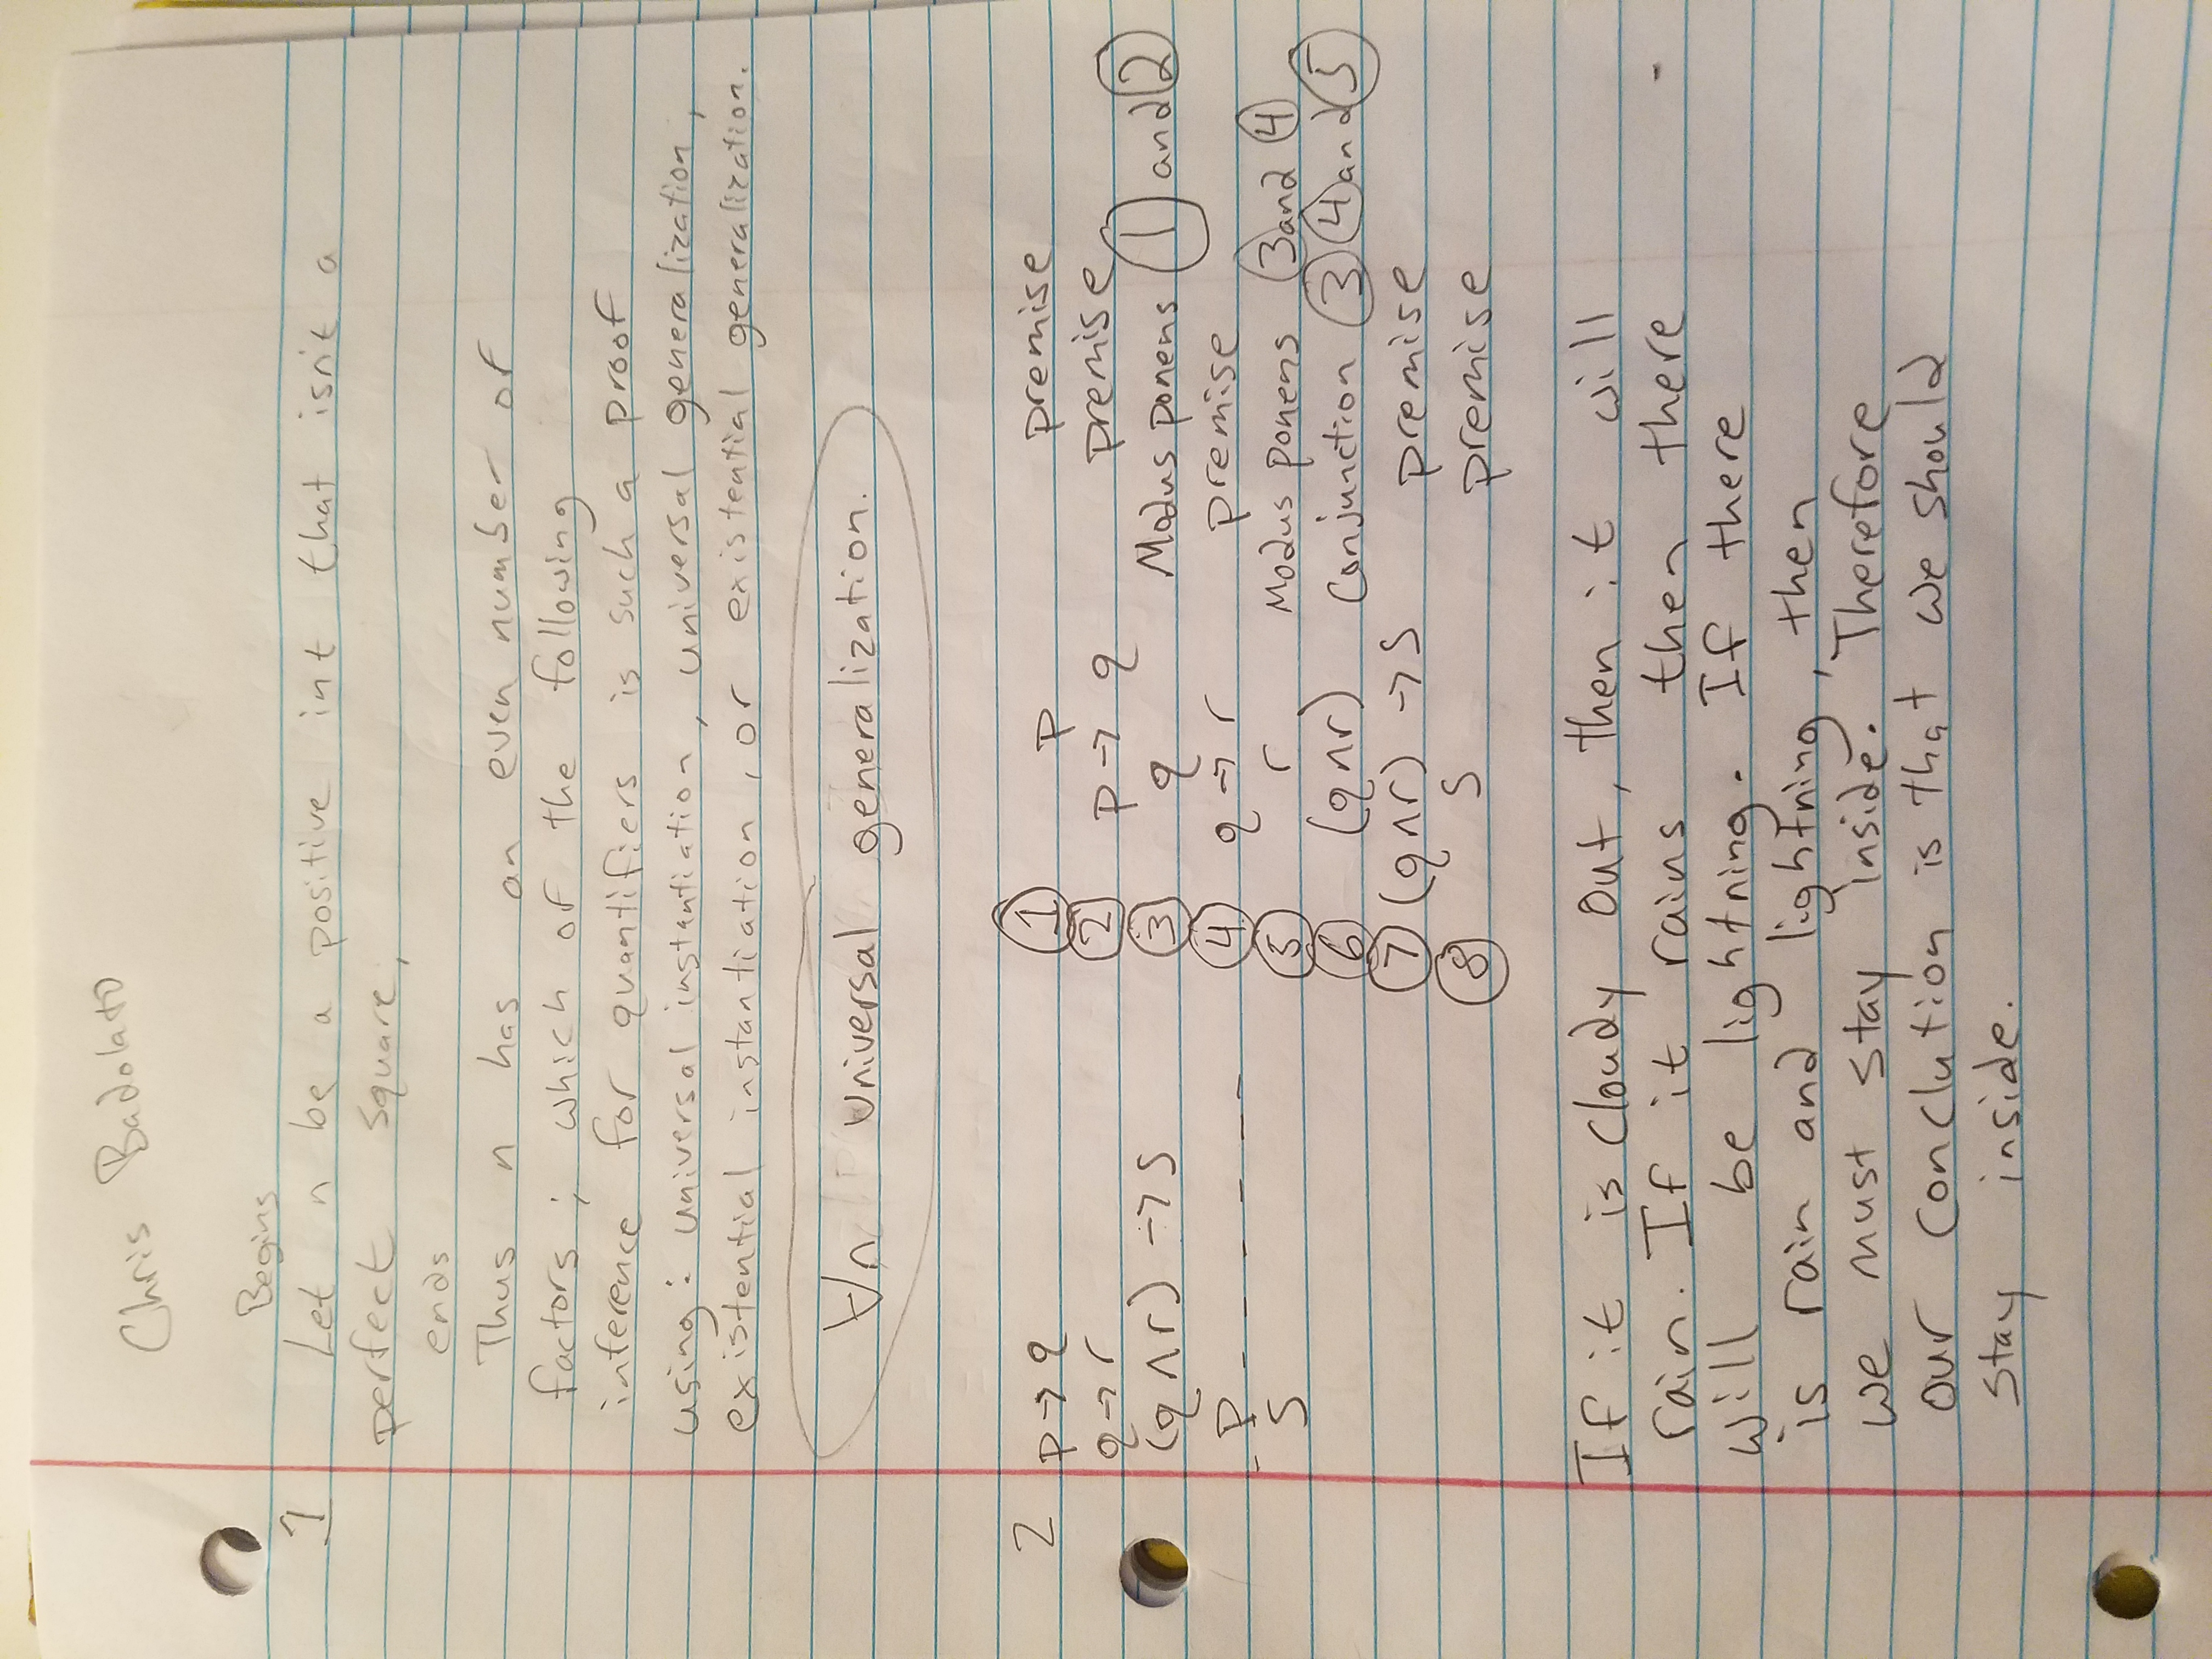 Chris Badolato
Begins
1 Let n be a positive int that isn't a
perfect square,
ends
Thus n has an even number of
factors ; which of the following
inference for quantifiers is such a proof
using : universal instantiation, universal generalization,
existential instantiation, or existential generalization.
∀n Universal generalization.
2 p → q ① p premise
q → r ② p → q premise
(q ∧ r) → S ③ q Modus ponens ① and ②
P ④ q → r premise
S ⑤ r Modus ponens ③ and ④
⑥ (q∧r) Conjunction ③ ④ and ⑤
⑦ (q∧r) → S premise
⑧ S premise
If it is cloudy out, then it will
rain. If it rains then there
will be lightning. If there
is rain and lightning, then
we must stay inside. Therefore
our conclution is that we should
stay inside.